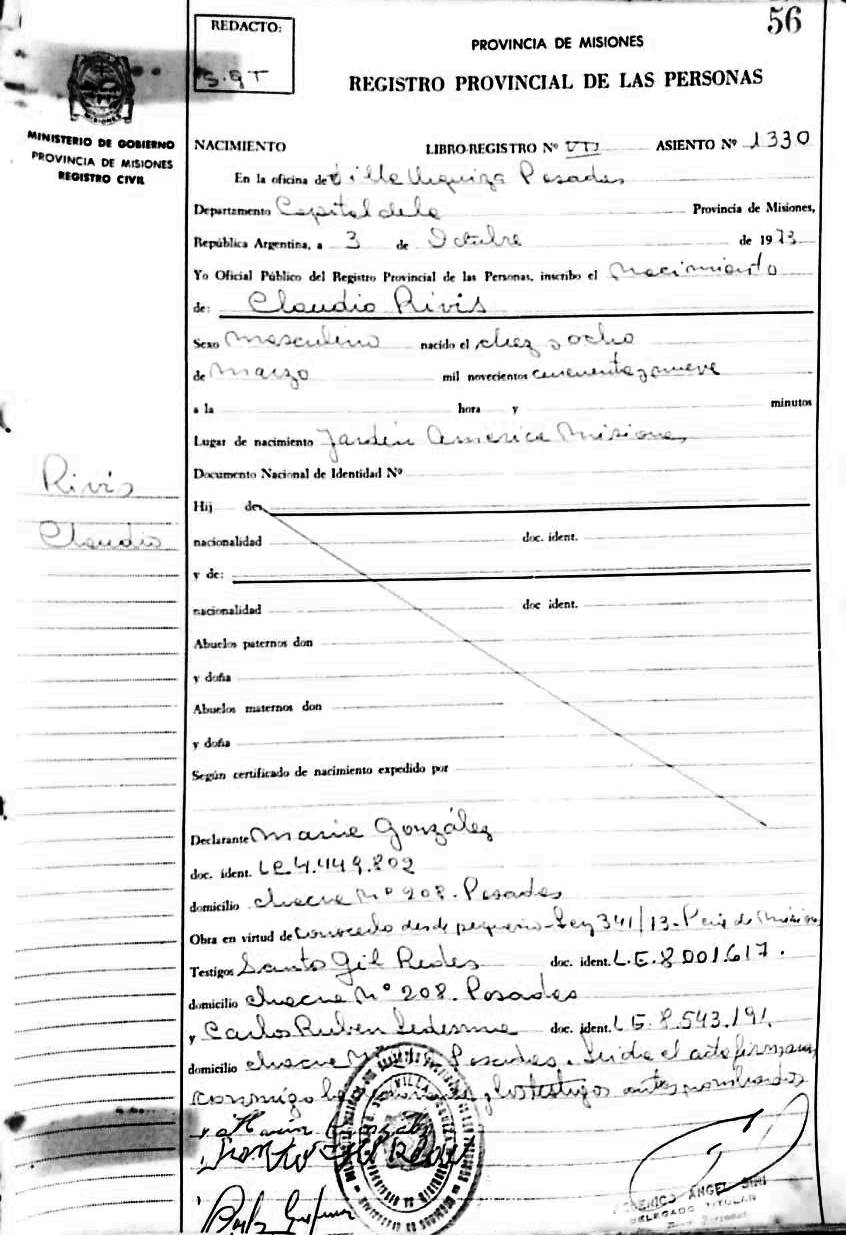 56
REDACTO:
S.G T
PROVINCIA DE MISIONES
REGISTRO PROVINCIAL DE LAS PERSONAS
MINISTERIO DE GOBIERNO
PROVINCIA DE MISIONES
REGISTRO CIVIL
NACIMIENTO LIBRO-REGISTRO Nº ASIENTO Nº 1330
En la oficina de Villa Urquiza Posadas
Departamento Capital de la Provincia de Misiones,
República Argentina, a 3 de Octubre de 1973
Yo Oficial Público del Registro Provincial de las Personas, inscribo el Nacimiento
de: Claudio Rivis
Sexo Masculino nacido el diez y ocho
de Marzo mil novecientos cincuenta y nueve
a la hora y minutos
Lugar de nacimiento Jardín America Misiones
Documento Nacional de Identidad Nº
Rivis
Claudio
Hij de
nacionalidad doc. ident.
y de:
nacionalidad doc ident.
Abuelos paternos don
y doña
Abuelos maternos don
y doña
Según certificado de nacimiento expedido por
Declarante Maria González
doc. ident. L.C. 4.449.802
domicilio chacra Nº 208. Posadas
Obra en virtud de conocerlo desde pequeño-Ley 341/13-
Testigos Santo Gil Redes doc. ident. L.E. 8001.617.
domicilio chacra Nº 208. Posadas
y Carlos Ruben Ledesma doc. ident. L E. 8.543.191.
domicilio chacra Posadas. Leida el acta firman
conmigo la y los testigos antes nombrados
ANGEL SIRI
DELEGADO TITULAR